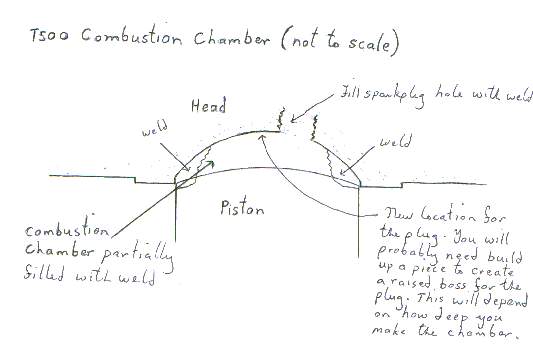 T500 Combustion Chamber (not to scale)
Fill sparkplug hole with weld
Head
weld
weld
Piston
Combustion
Chamber partially
filled with weld
New location for
the plug. You will
probably need build
up a piece to create
a raised boss for the
plug. This will depend
on how deep you
make the chamber.